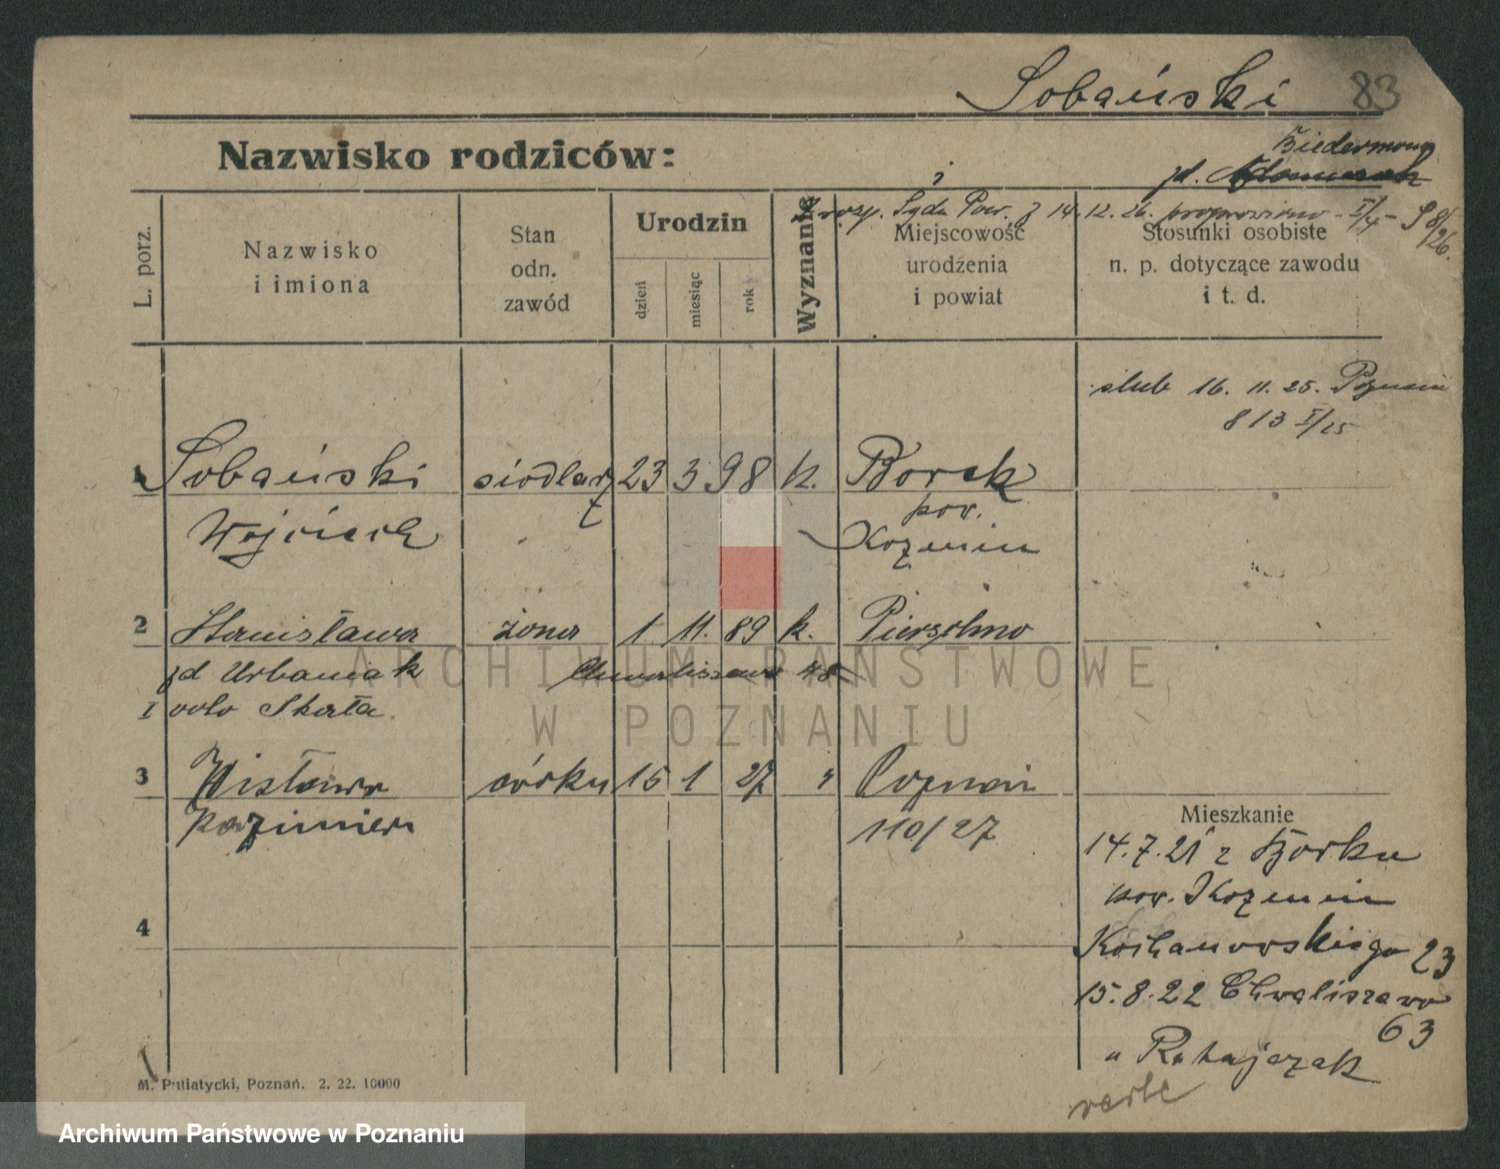 Sobański 83
Nazwisko rodziców:
Biedermann
zd.
i
rozp. Sądu Pow. z 14.12.26. poprawiono
L. porz.
Nazwisko
i imiona
Stan
odn.
zawód
Urodzin
dzień
miesiąc
rok
Wyznanie
Miejscowość
urodzenia
i powiat
Stosunki osobiste
n. p. dotyczące zawodu
i t. d.
ślub 16. 11. 25. Poznań
813 I/25
1 Sobański siodlarz 23 3 98 k. Borek
pow.
Wojciech Koźmin
2 Stanisława żona 1 11. 89 k. Pierzchno
zd Urbaniak Chwaliszewo 48
I voto Skała.
3 Wisława córka 15 1 27 " Poznań
Kazimiera 110/27
Mieszkanie
14.7.21 z Borku
pow. Koźmin
4
Kochanowskiego 23
15.8.22 Chwaliszewo
63
" Ratajczak
verte
M. Putiatycki, Poznań. 2. 22. 10000
ARCHIWUM PAŃSTWOWE
W POZNANIU
Archiwum Państwowe w Poznaniu